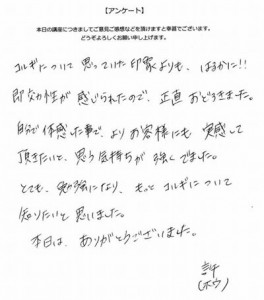 【アンケート】
本日の講座につきましてご意見ご感想などを頂けますと幸甚でございます。
どうぞよろしくお願い申し上げます。
コルギについて思っていた印象よりも、はるかに!!
即効性が感じられたので、正直おどろきました。
自分で体感した事で、よりお客様にも実感して
頂きたいと、思う気持ちが強くでました。
とても、勉強になり、もっとコルギについて
知りたいと思いました。
本日は、ありがとうございました。
許
(ホウ)